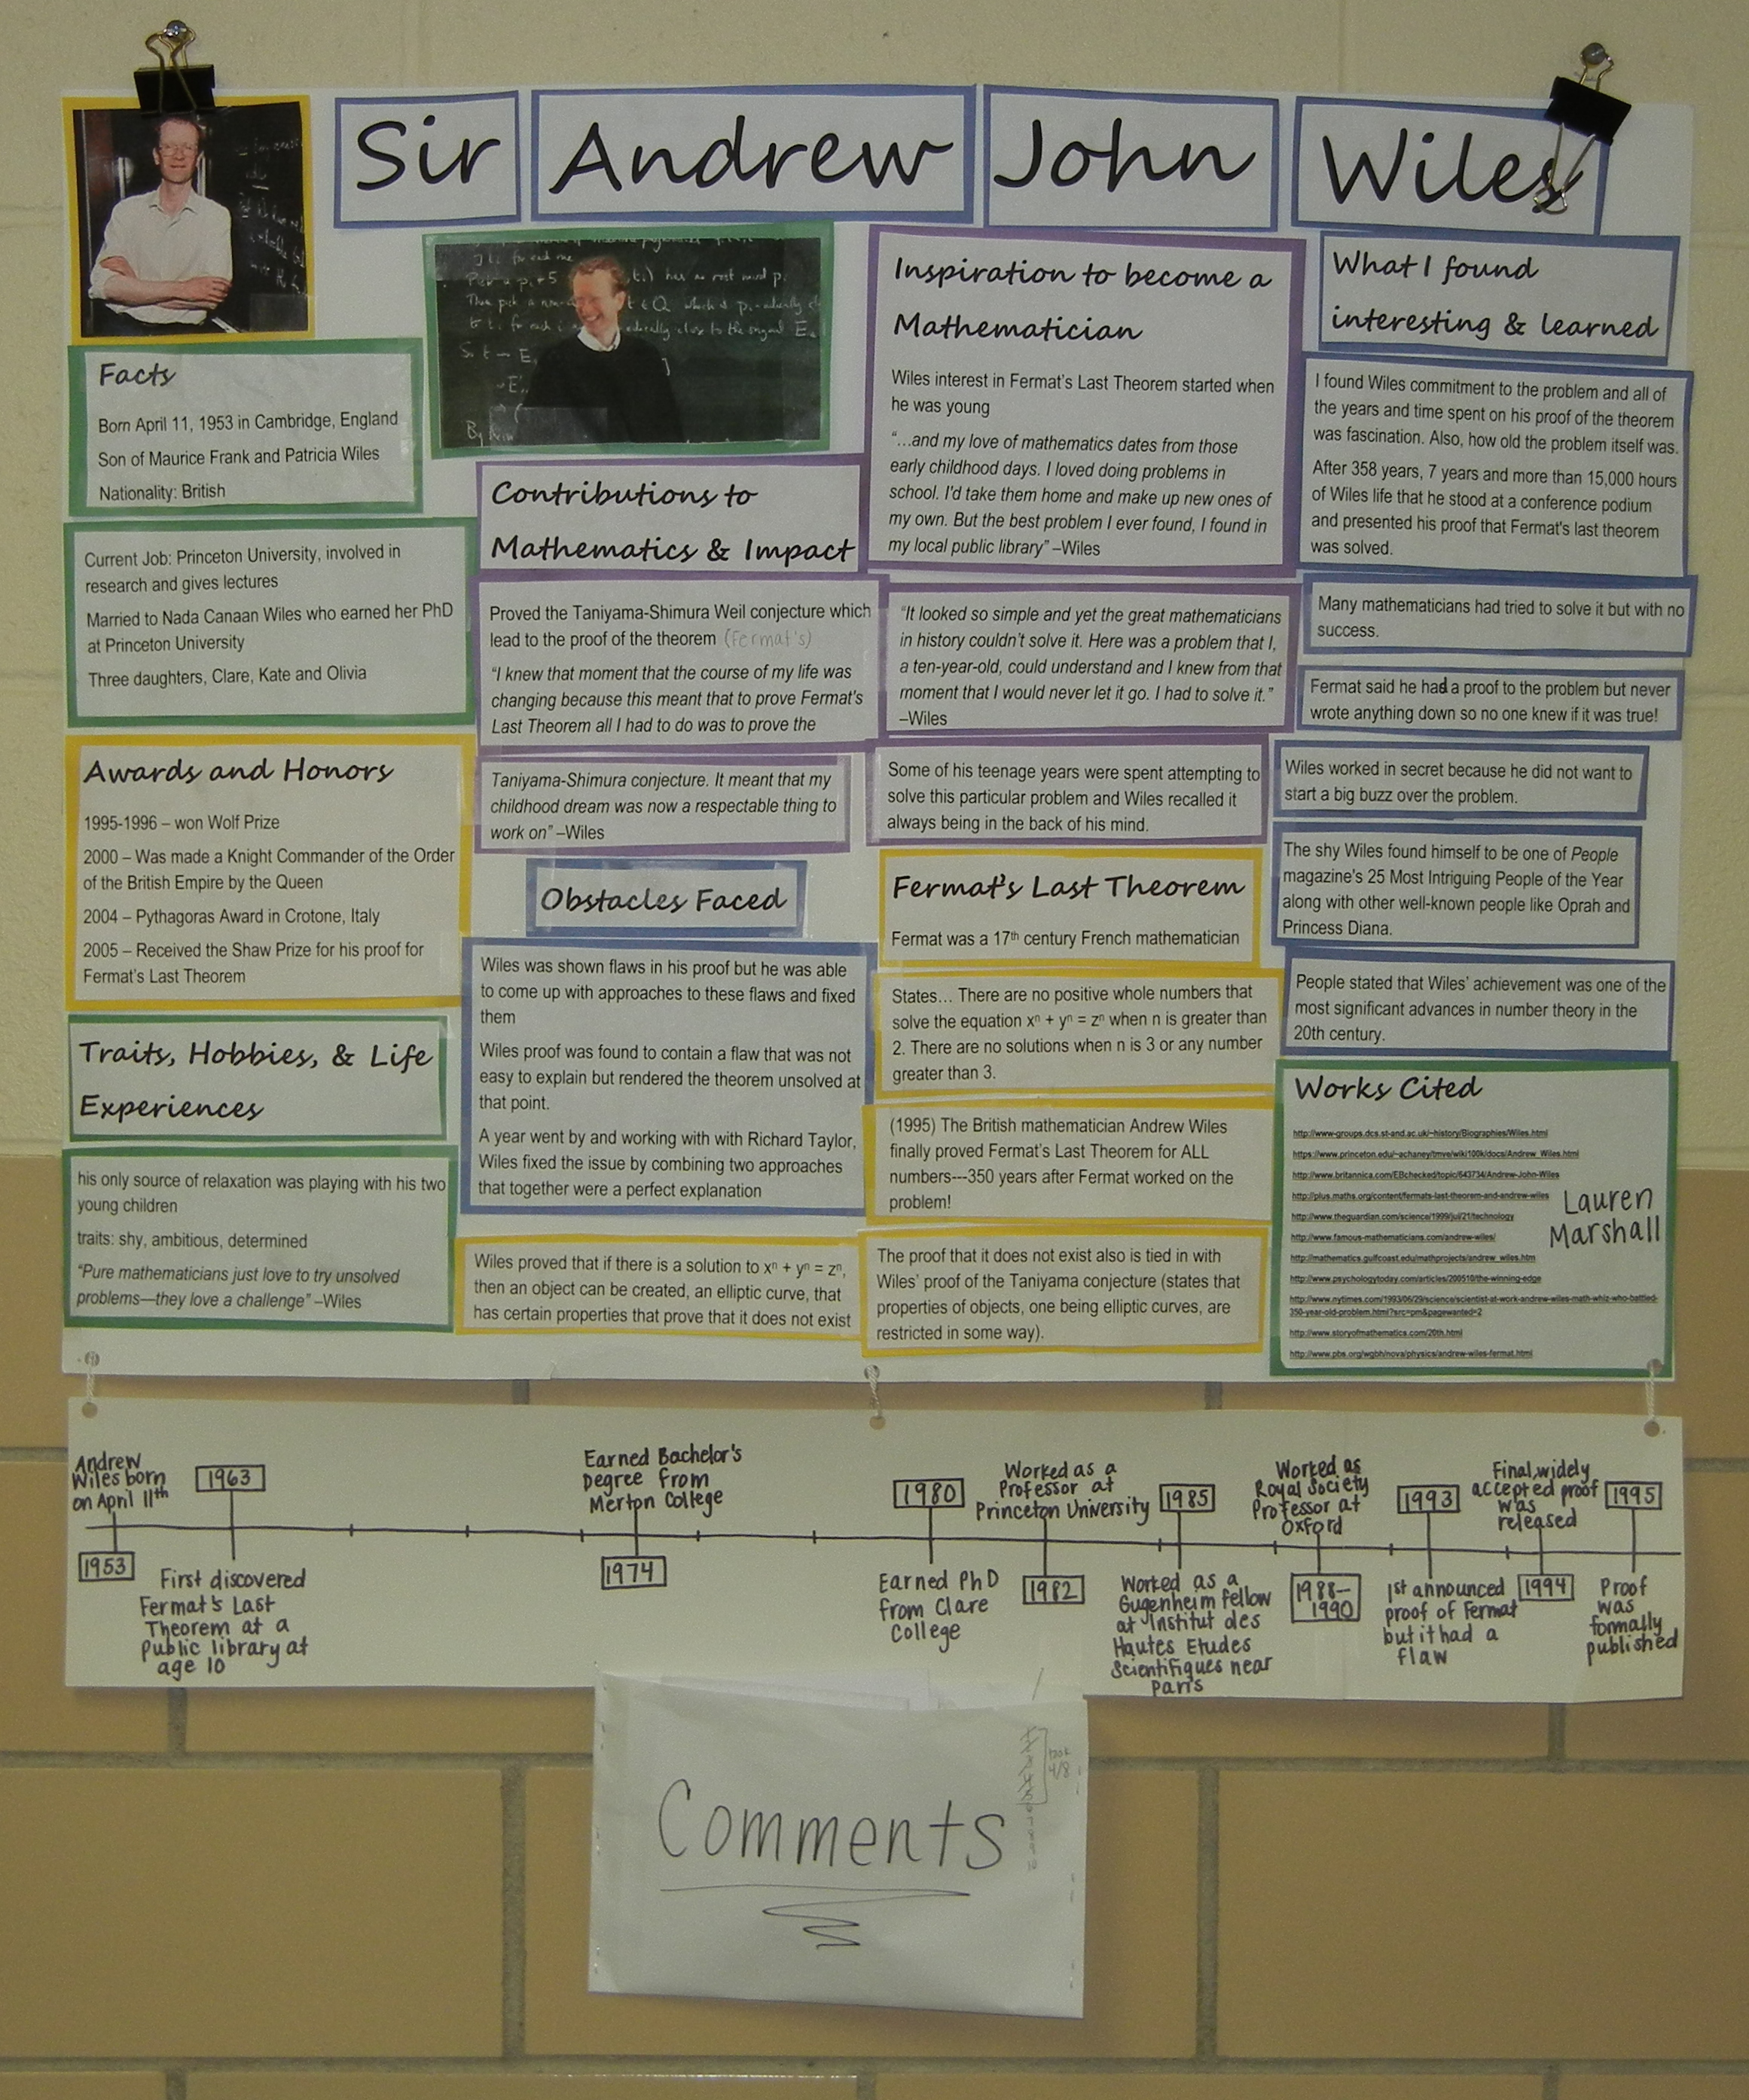 Sir Andrew John Wiles
Facts
Born April 11, 1953 in Cambridge, England
Son of Maurice Frank and Patricia Wiles
Nationality: British
Current Job: Princeton University, involved in
research and gives lectures
Married to Nada Canaan Wiles who earned her PhD
at Princeton University
Three daughters, Clare, Kate and Olivia
Awards and Honors
1995-1996 – won Wolf Prize
2000 – Was made a Knight Commander of the Order
of the British Empire by the Queen
2004 – Pythagoras Award in Crotone, Italy
2005 – Received the Shaw Prize for his proof for
Fermat's Last Theorem
Traits, Hobbies, & Life
Experiences
his only source of relaxation was playing with his two
young children
traits: shy, ambitious, determined
"Pure mathematicians just love to try unsolved
problems—they love a challenge" –Wiles
Contributions to
Mathematics & Impact
Proved the Taniyama-Shimura Weil conjecture which
lead to the proof of the theorem (Fermat's)
"I knew that moment that the course of my life was
changing because this meant that to prove Fermat's
Last Theorem all I had to do was to prove the
Taniyama-Shimura conjecture. It meant that my
childhood dream was now a respectable thing to
work on" –Wiles
Obstacles Faced
Wiles was shown flaws in his proof but he was able
to come up with approaches to these flaws and fixed
them
Wiles proof was found to contain a flaw that was not
easy to explain but rendered the theorem unsolved at
that point.
A year went by and working with with Richard Taylor,
Wiles fixed the issue by combining two approaches
that together were a perfect explanation
Wiles proved that if there is a solution to xⁿ + yⁿ = zⁿ,
then an object can be created, an elliptic curve, that
has certain properties that prove that it does not exist
Inspiration to become a
Mathematician
Wiles interest in Fermat's Last Theorem started when
he was young
"…and my love of mathematics dates from those
early childhood days. I loved doing problems in
school. I'd take them home and make up new ones of
my own. But the best problem I ever found, I found in
my local public library" –Wiles
"It looked so simple and yet the great mathematicians
in history couldn't solve it. Here was a problem that I,
a ten-year-old, could understand and I knew from that
moment that I would never let it go. I had to solve it."
–Wiles
Some of his teenage years were spent attempting to
solve this particular problem and Wiles recalled it
always being in the back of his mind.
Fermat's Last Theorem
Fermat was a 17th century French mathematician
States… There are no positive whole numbers that
solve the equation xⁿ + yⁿ = zⁿ when n is greater than
2. There are no solutions when n is 3 or any number
greater than 3.
(1995) The British mathematician Andrew Wiles
finally proved Fermat's Last Theorem for ALL
numbers---350 years after Fermat worked on the
problem!
The proof that it does not exist also is tied in with
Wiles' proof of the Taniyama conjecture (states that
properties of objects, one being elliptic curves, are
restricted in some way).
What I found
interesting & learned
I found Wiles commitment to the problem and all of
the years and time spent on his proof of the theorem
was fascination. Also, how old the problem itself was.
After 358 years, 7 years and more than 15,000 hours
of Wiles life that he stood at a conference podium
and presented his proof that Fermat's last theorem
was solved.
Many mathematicians had tried to solve it but with no
success.
Fermat said he had a proof to the problem but never
wrote anything down so no one knew if it was true!
Wiles worked in secret because he did not want to
start a big buzz over the problem.
The shy Wiles found himself to be one of People
magazine's 25 Most Intriguing People of the Year
along with other well-known people like Oprah and
Princess Diana.
People stated that Wiles' achievement was one of the
most significant advances in number theory in the
20th century.
Works Cited
http://www-groups.dcs.st-and.ac.uk/~history/Biographies/Wiles.html
https://www.princeton.edu/~achaney/tmve/wiki100k/docs/Andrew_Wiles.html
http://www.britannica.com/EBchecked/topic/643734/Andrew-John-Wiles
http://plus.maths.org/content/fermats-last-theorem-and-andrew-wiles
http://www.theguardian.com/science/1999/jul/21/technology
http://www.famous-mathematicians.com/andrew-wiles/
http://mathematics.gulfcoast.edu/mathprojects/andrew_wiles.htm
http://www.psychologytoday.com/articles/200510/the-winning-edge
http://www.nytimes.com/1993/06/29/science/scientist-at-work-andrew-wiles-math-whiz-who-battled-
350-year-old-problem.html?src=pm&pagewanted=2
http://www.storyofmathematics.com/20th.html
http://www.pbs.org/wgbh/nova/physics/andrew-wiles-fermat.html
Lauren
Marshall
Andrew
Wiles born
on April 11th
1953
1963
First discovered
Fermat's Last
Theorem at a
Public library at
age 10
Earned Bachelor's
Degree from
Merton College
1974
1980
Earned PhD
from Clare
College
Worked as a
Professor at
Princeton University
1982
1985
Worked as a
Gugenheim fellow
at Institut des
Hautes Etudes
Scientifiques near
Paris
Worked as
Royal Society
Professor at
Oxford
1988-
1990
1993
1st announced
proof of Fermat
but it had a
flaw
Final, widely
accepted proof
was
released
1994
1995
Proof
was
formally
published
Comments